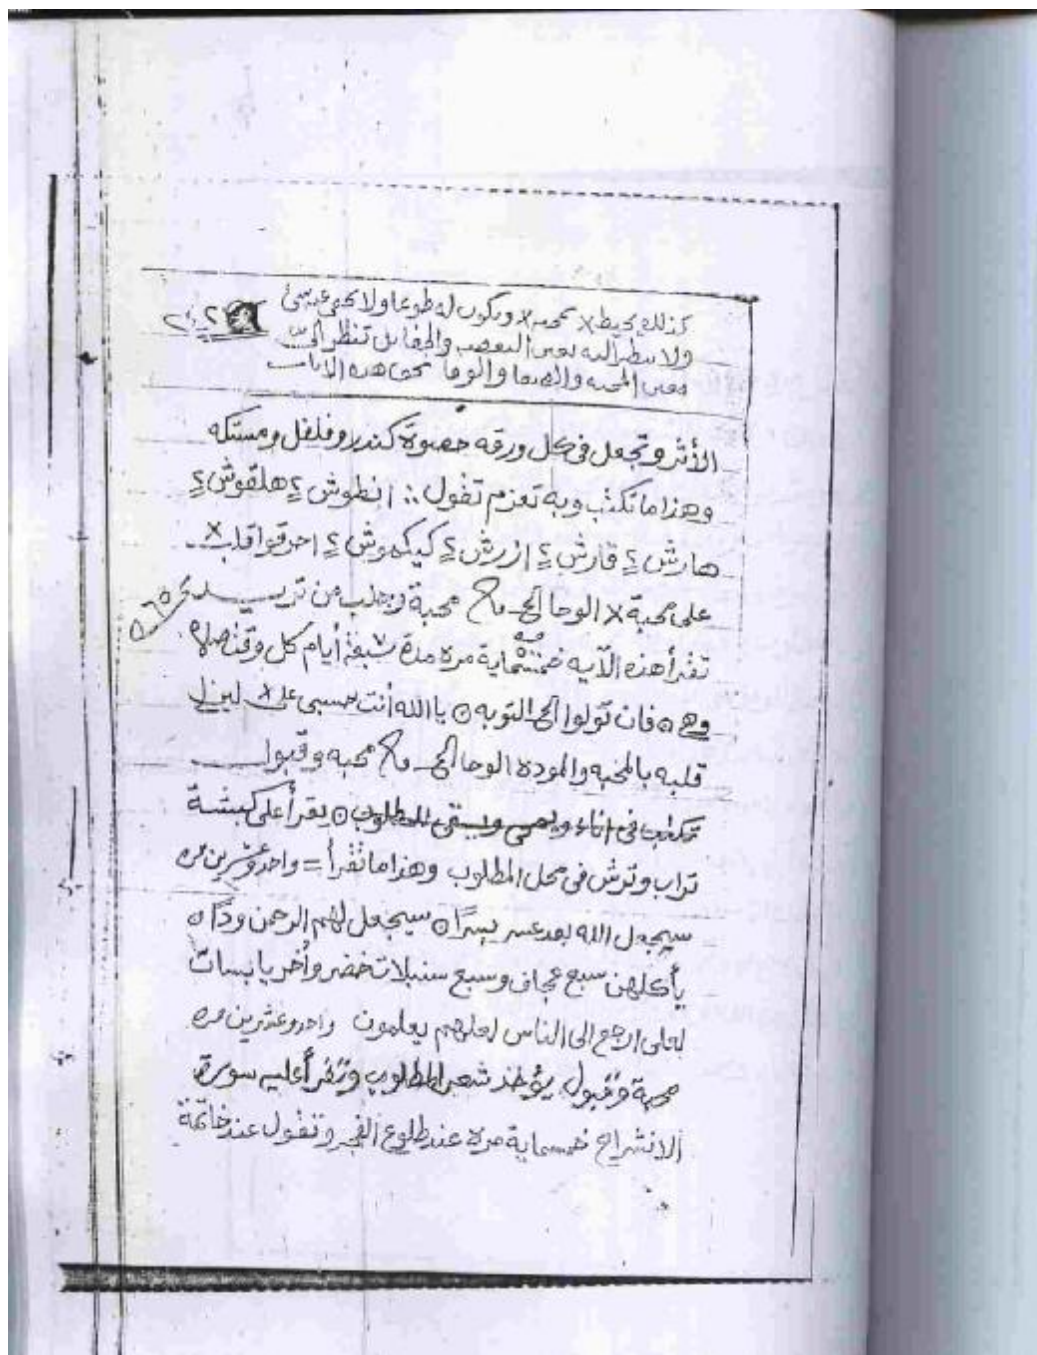 كذلك يحيط × بمحبه × ويكون له طوعا ولا يخفى عنه شئ
ولا ينظر اليه بعين البغض والجفا بل تنظر الى
بعين المحبه والصفا والوفا بحق هذه الايات
الأثر وتجعل في كل ورقه حصوة كندر وفلفل ومستكه
وهذا ما تكتب وبه تعزم تقول ∴ انطوش ٤ هلقوش ٤
هارش ٤ قارش ٤ ازرش ٤ كيكموش ٤ احرقوا قلب ×
على محبة × الوحا الخ محبة وجلب من تريد
تقرأ هذه الآيه خمسماية مره مدة سبعة أيام كل وقت صلاه
وهي ٥ فان تولوا الخ التوبه ٥ يا الله أنت حسبي على × لين لي
قلبه بالمحبه والموده الوحا الخ محبه وقبول
تكتب في اناء ويمحى ويسقى للمطلوب ٥ يقرأ على كبشة
تراب وترش في محل المطلوب وهذا ما تقرأ = واحد وعشرين مره
سيجعل الله بعد عسر يسرًا ٥ سيجعل لهم الرحمن ودًا ٥
يأكلهن سبع عجاف وسبع سنبلات خضر وأخر يابسات
لعلى ارجع الى الناس لعلهم يعلمون واحد وعشرين مره
محبة وقبول يؤخذ شعر المطلوب وتقرأ عليه سورة
الانشراح خمسماية مره عند طلوع الفجر وتقول عند خاتمة